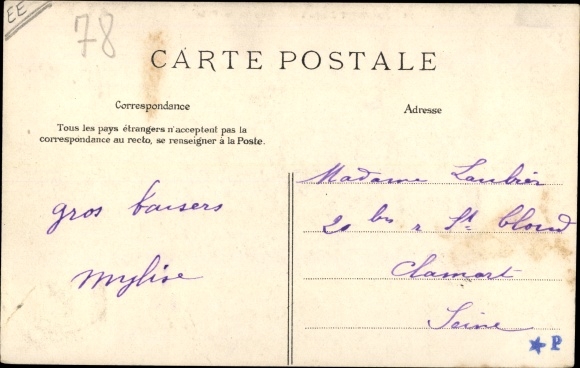 EE
78
CARTE POSTALE
Correspondance
Tous les pays étrangers n'acceptent pas la
correspondance au recto, se renseigner à la Poste.
gros baisers
Adresse
Madame Laubier
20 bis r St. Cloud
Clamart
Seine
★ P